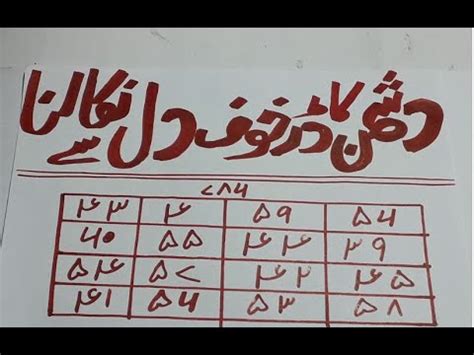 دشمن کا ڈر خوف دل سے نکالنا
۷۸۶
۵۶ ۵۹ ۴ ۴۳
۳۹ ۴۴ ۵۵ ۶۰
۴۵ ۴۲ ۵۷ ۵۴
۵۸ ۵۳ ۵۶ ۴۱